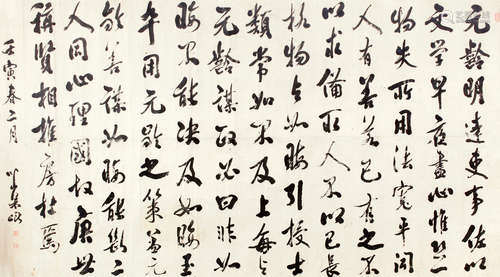 元齡明達吏事佐以
文学早夜盡心惟恐
物失所用法寬平聞
人有善若己有之不
以求備取人不以己長
格物与如晦引拔士
類常如不及上每与
元齡謀政必曰非如
晦不能决及如晦至
卒用元齡之策蓋元
齡善謀如晦能斷二
人同心理國故唐世
稱賢相推房杜焉
壬寅春二月